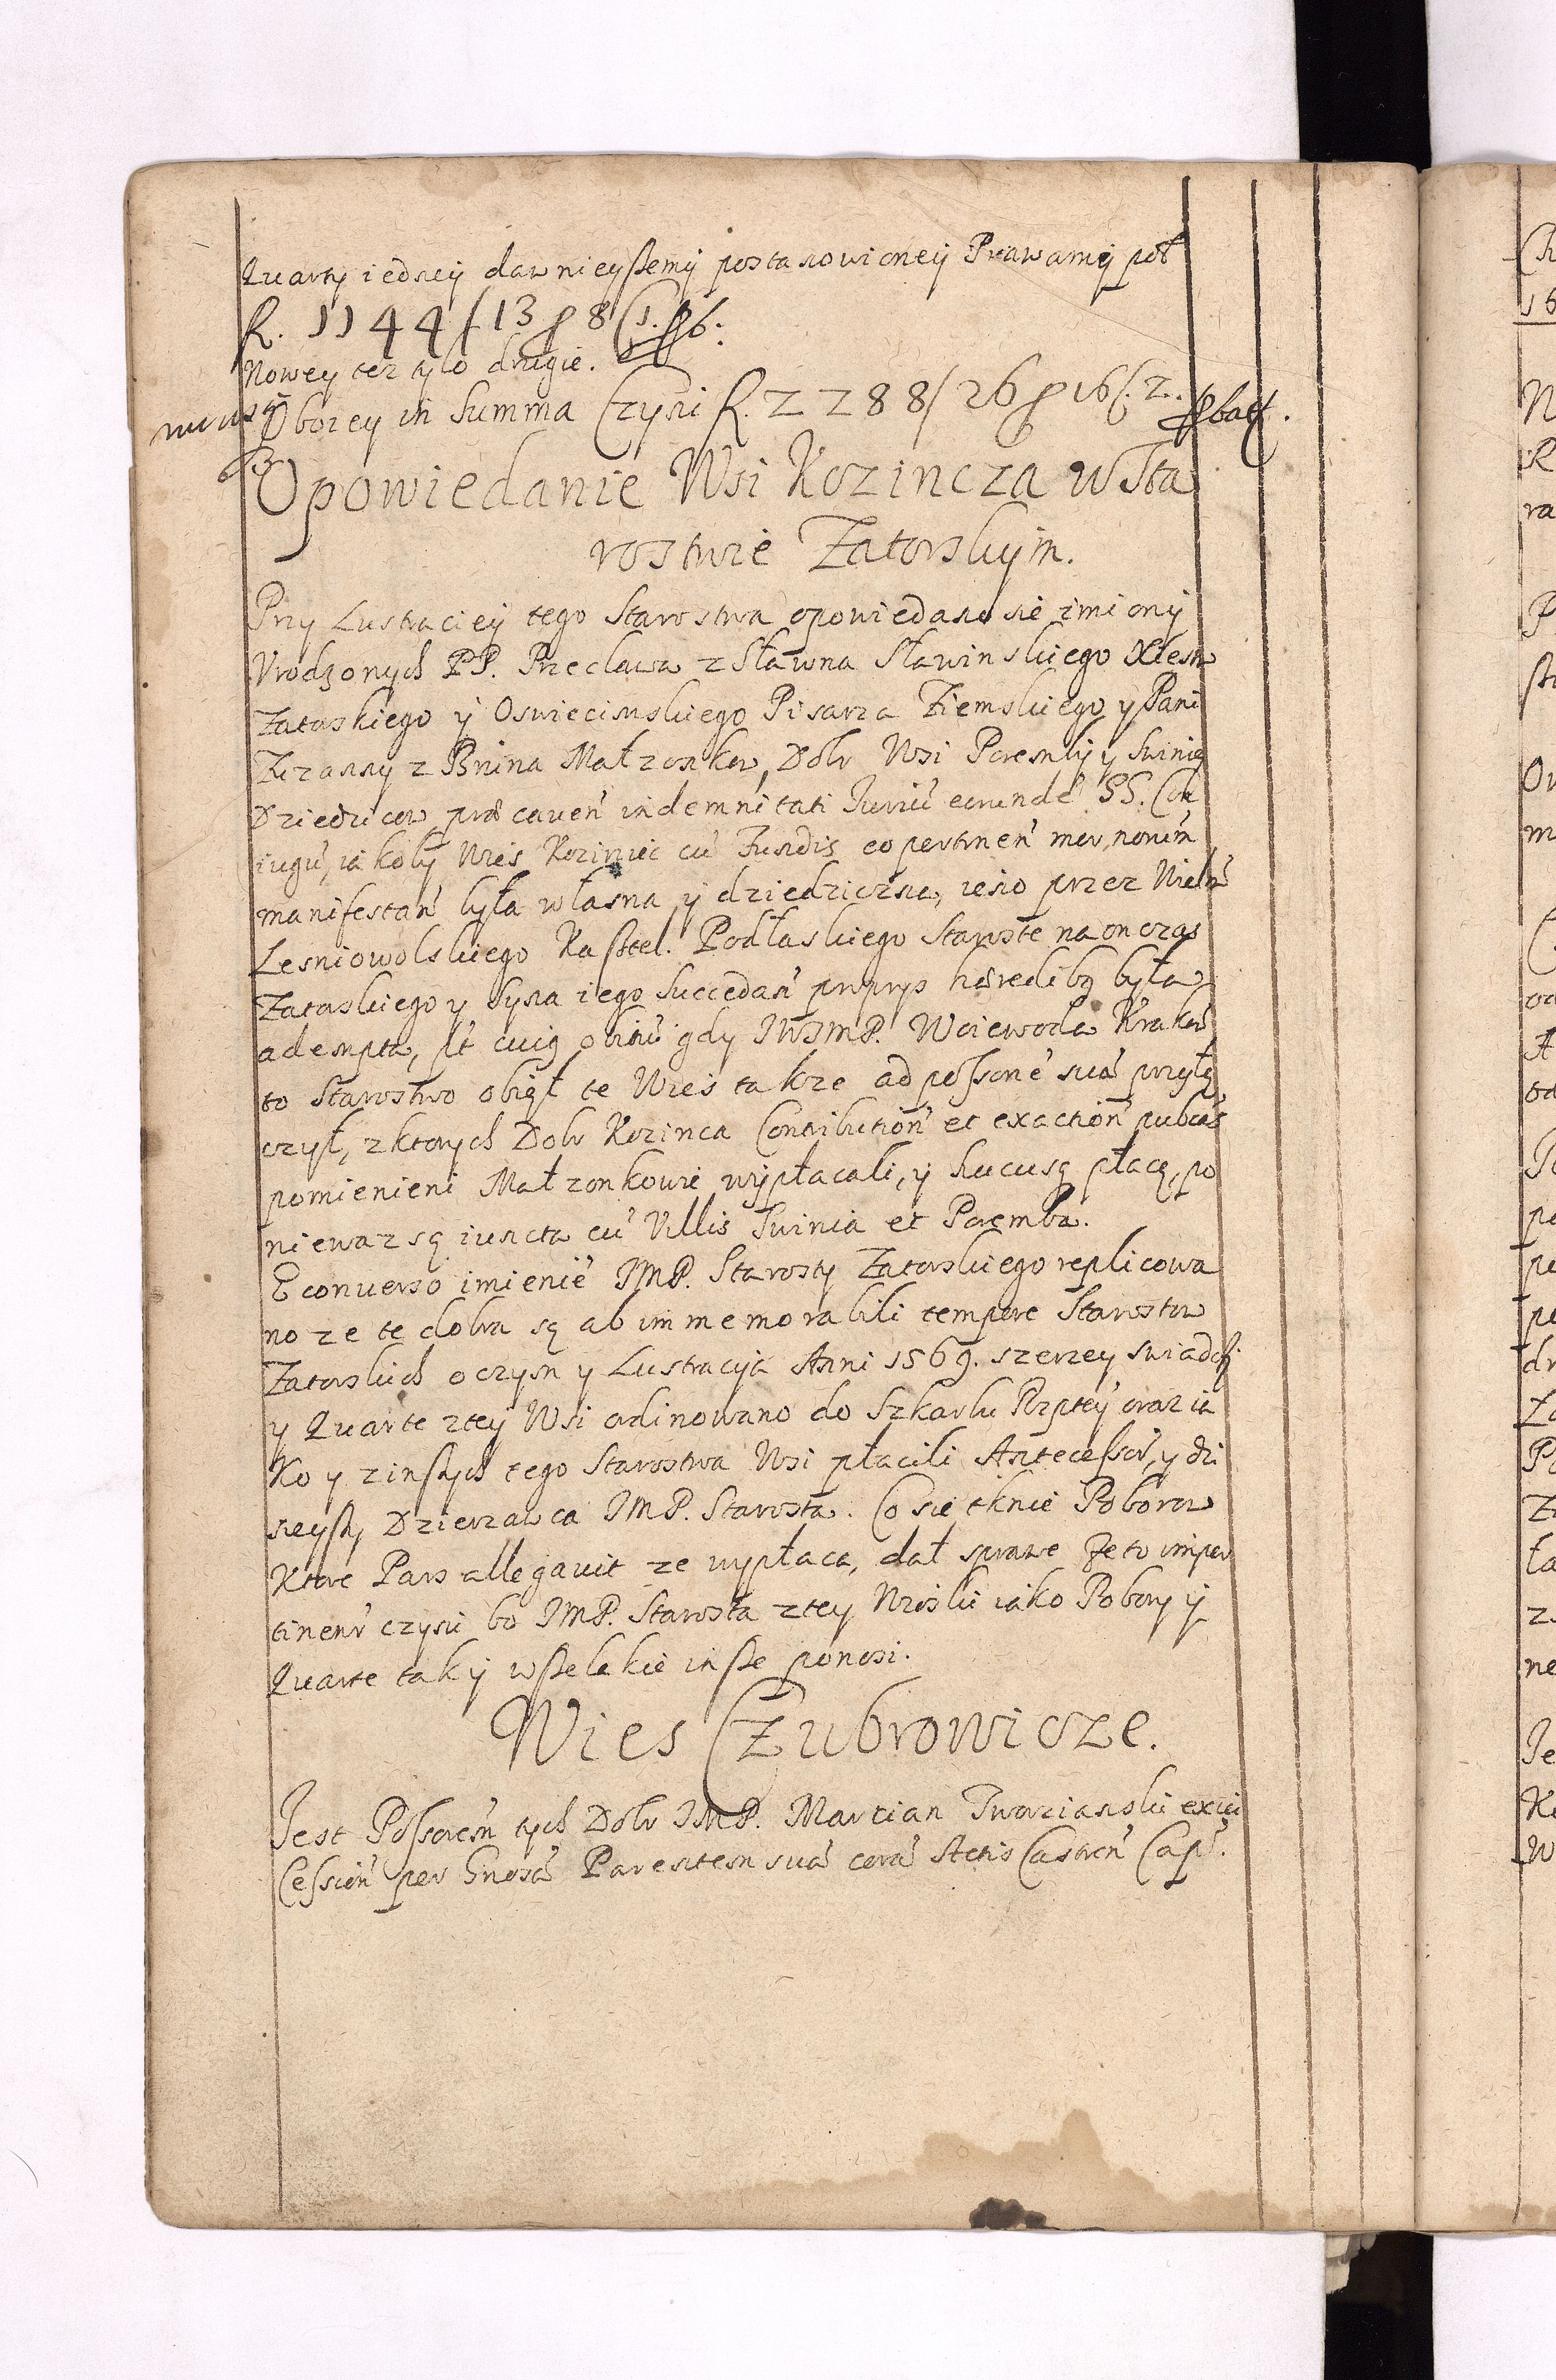 Quarty iedney dawnieyszemy postanowioney Prawamy poł
R. 1144/13 ꝑ 8 (1.
Nowey tez tylo drugie.
Oboiey in Summa Czyni R. 2288/26 ꝑ 16 (. 2.
Opowiedanie Wsi Kozincza w Sta
rostwie Zatorskym.
Przy Lustraciey tego Starostwa opowiedano sie imiony
Vrodzonych PP. Przeclawa z Sławna Sławinskiego Xiestw
Zatorskiego y Oswiecimskiego Pisarza Ziemskiego y Pani
Zuzanny z Bnina Małzonkow, Dobr Wsi Poremby y Swinię
Dziedzicow præcauen̄ indemnitati Juriū eorundē SS. Con
iugū, iakoby Wies Koziniec cū Fundis eo pertinen̄
manifestan̄ była własna y dziedziczna, ieno przez Wieln̄
Lesniowolskiego Kasztel. Podlaskiego Staroste na on czas
Zatorskiego y Syna iego succedan̄ hæredibꝫ była
adempta, pt̄ cuiꝫ obitū gdy JWJMP. Woiewoda Krakow̄
to Starostwo obiął te Wies takze ad possonē̄ suā przyłą
czył, z ktorych Dobr Kozinca Contributión̄ et exactión̄ publicas
pomienieni Małzonkowie wypłacali, y hucusq płacą, po
niewaz są iuncta cū Villis Swinia et Poremba.
E conuerso imienié JMP. Starosty Zatorskiego replicowa
no ze te dobra są ab immemorabili tempore Starostw
Zatorskich o czym y Lustracyja Anni 1569. szerzey swiadczy
y Quarte z tey Wsi ordinowano do Szkarbu Rzptey oraz ia
ko y z inszych tego Starostwa Wsi płacili Antecessor̄, y dzi
sieyszy Dzierzawca JMP. Starosta. Co sie tknie Poborow
Ktore Pars allegauit ze wypłaca, dał sprawe Ze to imper
tinent̄ czyni bo JMP. Starosta z tey Wioski iako Pobory y
Quarte tak y wszelakie insze ponosi.
Wies Czubrowicze.
Jest Possorem tych Dobr JMP. Martian Tworzianski ex vi
Cession̄ per Gnosā Parentem suā corā Actis Castren̄ Cap̄.